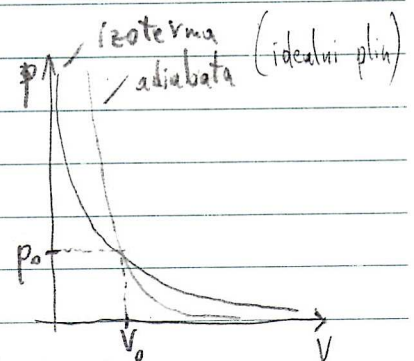 izoterma
adiabata (idealni plin)
p
p₀
V₀
V